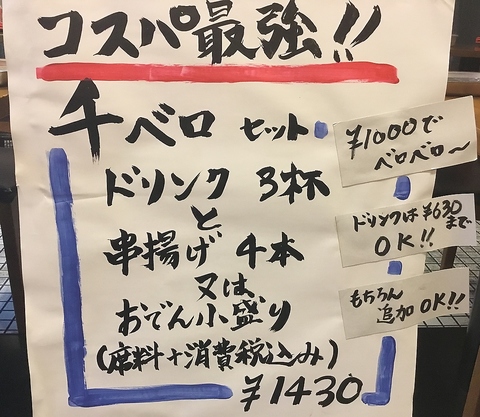 コスパ最強!!
千ベロ セット
ドリンク 3杯
と
串揚げ 4本
又は
おでん小盛り
(席料+消費税込み)
¥1430
¥1000で
ベロベロ〜
ドリンクは¥630
まで
OK!!
もちろん
追加OK!!